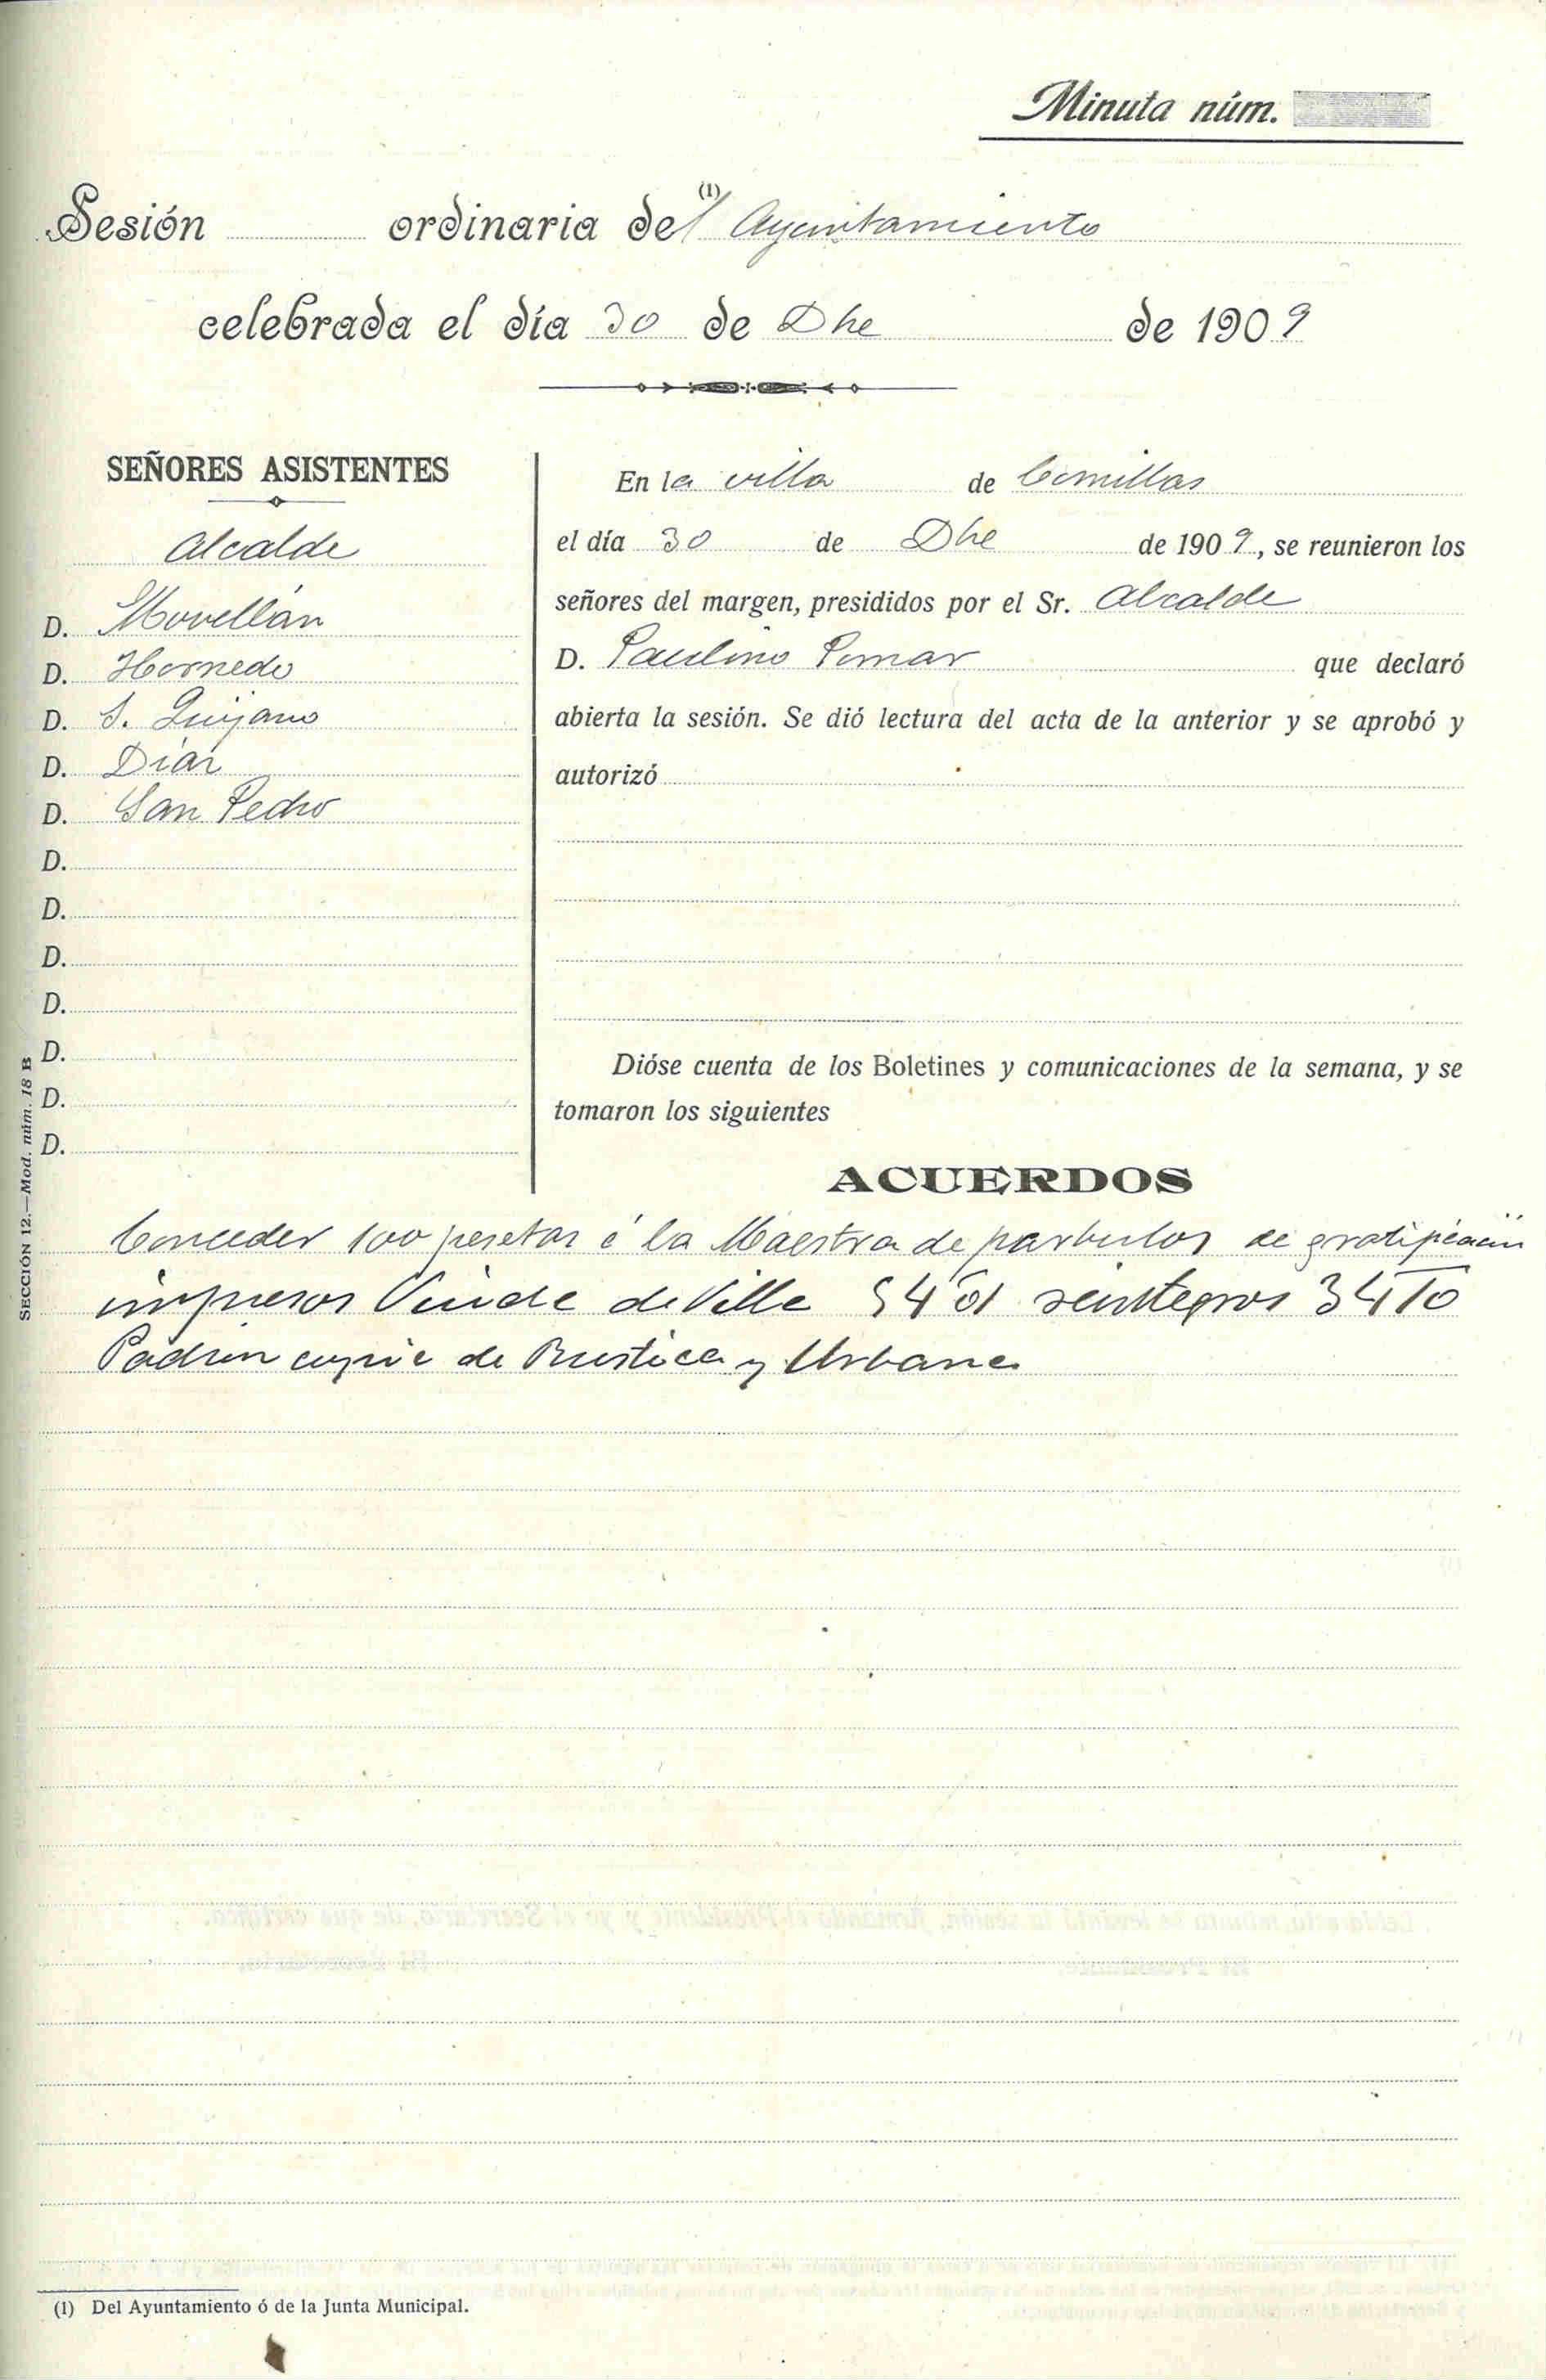 Minuta núm.
Sesión ordinaria del (1) Ayuntamiento
celebrada el día 30 de Dbe de 1909
SEÑORES ASISTENTES
Alcalde
D. Movellán
D. Hornedo
D. S. Quijano
D. Díaz
D. San Pedro
D.
D.
D.
D.
D.
D.
D.
En la villa de Comillas
el día 30 de Dbe de 1909, se reunieron los
señores del margen, presididos por el Sr. Alcalde
D. Paulino Pomar que declaró
abierta la sesión. Se dió lectura del acta de la anterior y se aprobó y
autorizó
Dióse cuenta de los Boletines y comunicaciones de la semana, y se
tomaron los siguientes
ACUERDOS
Conceder 100 pesetas á la Maestra de parbulos de gratificación
impresos Viuda de Villa 54 01 reintegros 34 10
Padrón copia de Rustica y Urbana
SECCIÓN 12.—Mod. núm. 18 B
(1) Del Ayuntamiento ó de la Junta Municipal.